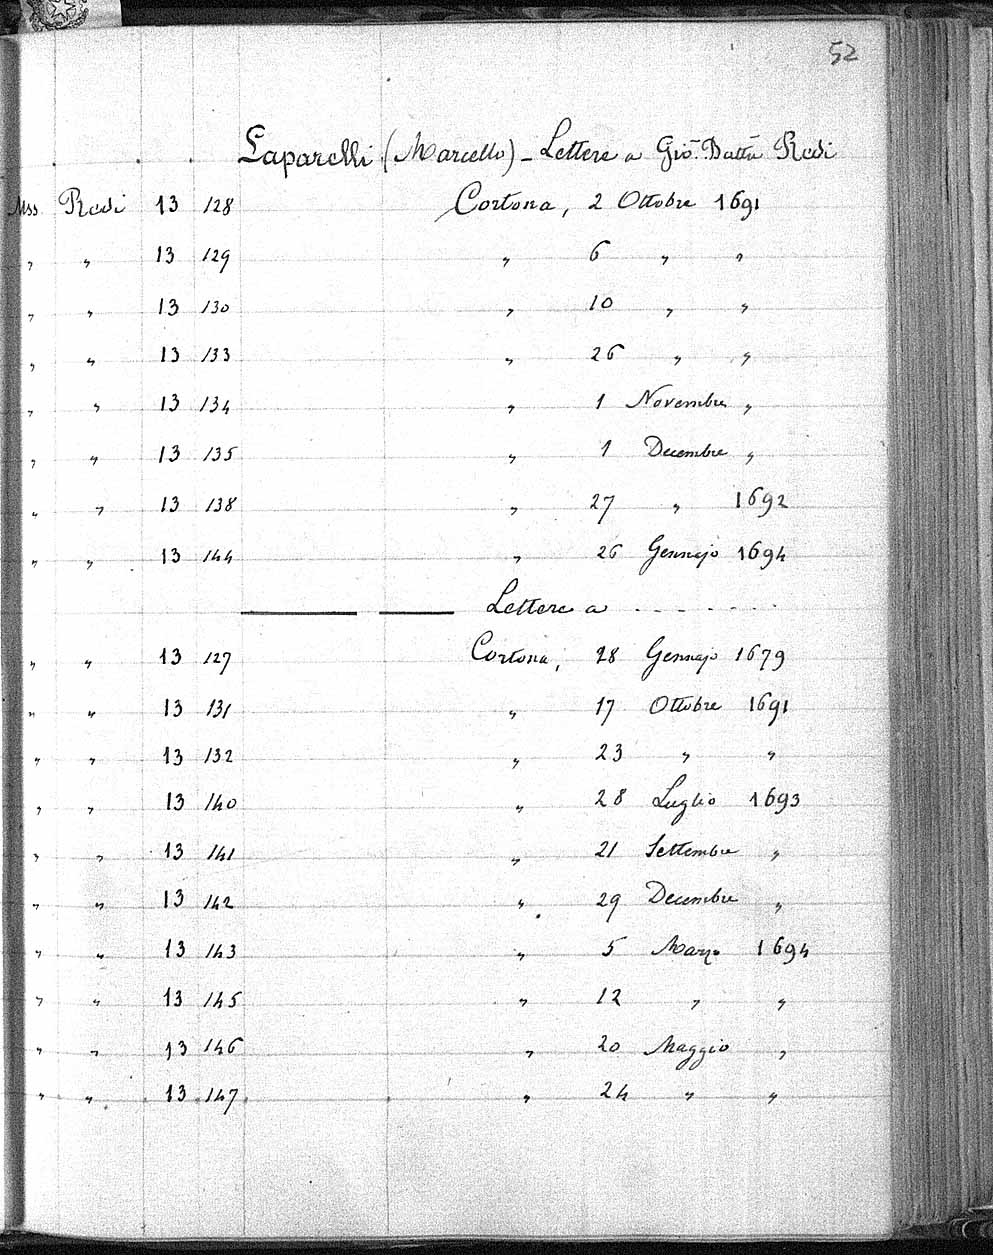 52
Laparelli (Marcello) - Lettere a Gio. Batta Redi
Mss Redi 13 128 Cortona, 2 Ottobre 1691
" " 13 129 " 6 " "
" " 13 130 " 10 " "
" " 13 133 " 26 " "
" " 13 134 " 1 Novembre "
" " 13 135 " 1 Decembre "
" " 13 138 " 27 " 1692
" " 13 144 " 26 Gennajo 1694
—— —— Lettere a - - - - - -
" " 13 127 Cortona, 28 Gennajo 1679
" " 13 131 " 17 Ottobre 1691
" " 13 132 " 23 " "
" " 13 140 " 28 Luglio 1693
" " 13 141 " 21 Settembre "
" " 13 142 " 29 Decembre "
" " 13 143 " 5 Marzo 1694
" " 13 145 " 12 " "
" " 13 146 " 20 Maggio "
" " 13 147 " 24 " "